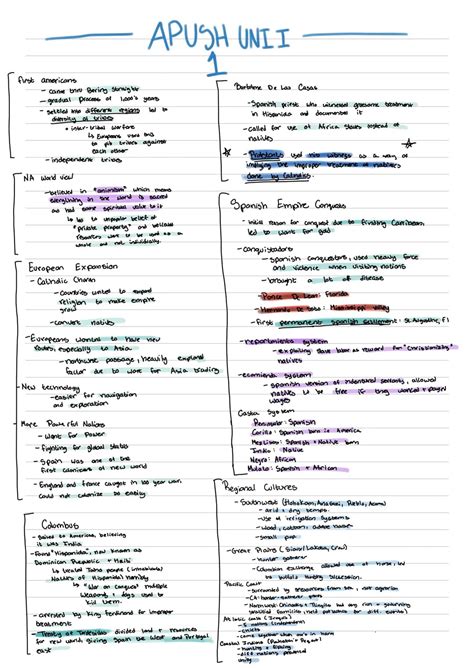 APUSH UNIT
1
First americans
- came thru Bering Straight
- gradual process of 1,000's years
- settled into different regions led to
diversity of tribes
• inter-tribal warfare
↳ Europeans used this
to pit tribes against
each other
- independent tribes
NA World view
- believed in "animism" which means
everything in the world is sacred
and had some spiritual value to it
↳ led to unpopular belief of
"private property" and
resources were to be used as a
and not individually.
European Expansion
- Catholic Church
- Countries united to expand
religion to make empire
grow
- convert natives
- Europeans wanted to have new
routes, especially to Asia
- northwest passage, heavily explored
factor due to want for Asia trading
- New technology
- easier for navigation
and exploration
- More Powerful Nations
- Want for Power
- Fighting for global status
- Spain was one of the
first colonizers of new world
- England and France caught in 100 year war,
could not colonize so easily
Columbus
- Sailed to Americas, believing
it was India
- Found "Hispanola", now known as
Dominican Republic + Haiti
↳ treated Taino people
Natives of Hispanola horribly
↳ "War on Conquest" multiple
weapons + dogs used to
kill them.
- arrested by King Ferdinand for improper
treatment
- Treaty of Tordesillas divided land + resources
for new world giving Spain the West and Portugal
east
Bartolome De Las Casas
- Spanish priest who witnessed gruesome treatment
in Hispanola and documented it
- called for use of Africa slaves instead of
natives
- Protestants used this witness as a way of
implying the improper treatment of natives
done by Catholics.
Spanish Empire Conquests
- initial reason for conquest due to finding Caribbean,
led to want for gold
- conquistadors
- Spanish conquestors, used heavy force
and violence when visiting nations
- brought a lot of disease
- Ponce De Leon: Florida
- Hernando De Soto: Mississippi valley
- First permanent spanish settlement: St. Augustine, Fl
- repartimiento system
- exploiting slave labor as reward for "Christianizing"
natives
- ecomienda system
- spanish version of indentured servants, allowed
natives to be free if they worked + payed
wages
Casta System
Peninsular: Spanish
Corillo: Spanish born in America
Mestizos: Spanish + Native born
Indio: Native
Negro: African
Mulato: Spanish + African
Regional Cultures
- Southwest (Hohokam, Anasazi, Pueblo, Acoma)
- arid + dry temps.
- use of irrigation systems
- Wood, cottom, adobe
- small pop
- Great Plains (Sioux/Lakota, Crow)
- Hunter gatherer
- Columbian exchange allowed use of horse, led
to buffalo hunting
Pacific Coast
- surrounded by resources from sea, not agrarian
- CA: hunter gatherer pops
- Northwest: Chinooks + Tlingits
Atlantic coast (Iroquois)
- 5 nations
- come together when are in harm
Coastal Indians (Powhatan + Pequot)
- hunting + fishing
- diff nations
unity